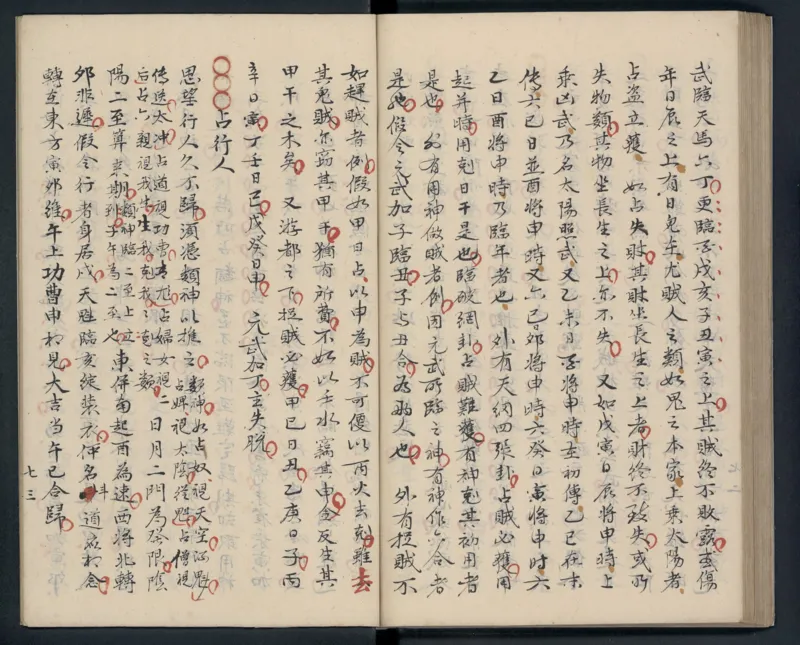 武臨天馬六丁更臨子戌亥子丑寅之上其賊終不敗露或傷
年日辰之上有日鬼年尤賊人之類如鬼之本家上乘太陽者
占盜立獲 如占失財其財坐長生之上者財終不致失或所
失物類其物坐長生之上亦不失 又如戊寅日辰將申時上
乘山武乃名太陽照武又乙未日子將申時亥初傳乙巳在末
傳六己日並酉將申時又六巳日卯將申時六癸日寅將申時六
乙日酉將申時乃臨年者也 外有天網四張卦占賊必獲用
起並時用剋日干是也臨破網卦占賊難獲有神剋其初用者
是也 外有用神做賊者例因元武所臨之神有神作六合者
是也假令元武加子臨丑子與丑合為兩人也 外有捉賊不
如趕賊者例假如甲日占以申為賊不可便以丙火去剋雖去
其鬼賊亦竊其甲干猶有所費不如以壬水竊其申金反生其
甲干之木矣 又游都之下捉賊必獲甲己日丑乙庚日子丙
辛日寅丁壬日巳戊癸日申 元武加丁立失脫
〇〇〇占行人
思望行人久不歸須憑類神以推之類神如占奴視天空河魁占婢視太陰從魁占僧視
傳送太冲占道視功曹占尼占婦女視二
白占六親視我生生我剋我我剋之類 日月二門為發限陰
陽二至算來期類神臨二至上立期到子午為二至也 東併南起酉為速西將北轉
卯非遲假令行者身居戌天魁臨亥綻裝衣併名斗道應相念
轉至東方寅卯維午上功曹申相見大吉當午已合歸
七三